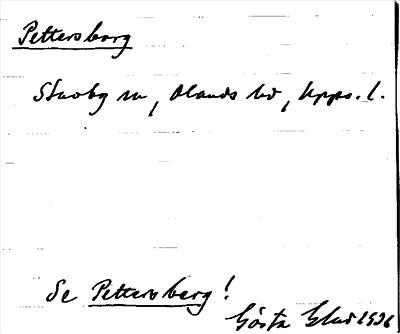 Pettersborg
Stavby sn, Olands hd, Upps. l.
Se Pettersberg!
Gösta Glad 1936